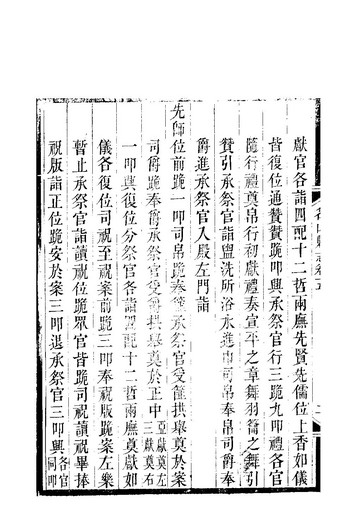 獻官各詣四配十二哲兩廡先賢先儒位上香如儀
皆復位通贊贊跪叩興承祭官行三跪九叩禮各官
隨行禮奠帛行初獻禮奏宣平之章舞羽籥之舞引
贊引承祭官詣盥洗所浴水進巾司帛奉帛司爵奉
爵進承祭官入殿左門詣
先師位前跪一叩司帛跪奉篚承祭官受篚拱舉奠於案
司爵跪奉爵承祭官受爵拱舉奠於正中亞獻奠左三獻奠右
一叩興復位分祭官各詣四配十二哲兩廡奠獻如
儀各復位司祝至祝案前跪三叩奉祝版跪案左樂
暫止承祭官詣讀祝位跪眾官皆跪司祝讀祝畢捧
祝版詣正位跪安於案三叩退承祭官三叩興各官同叩